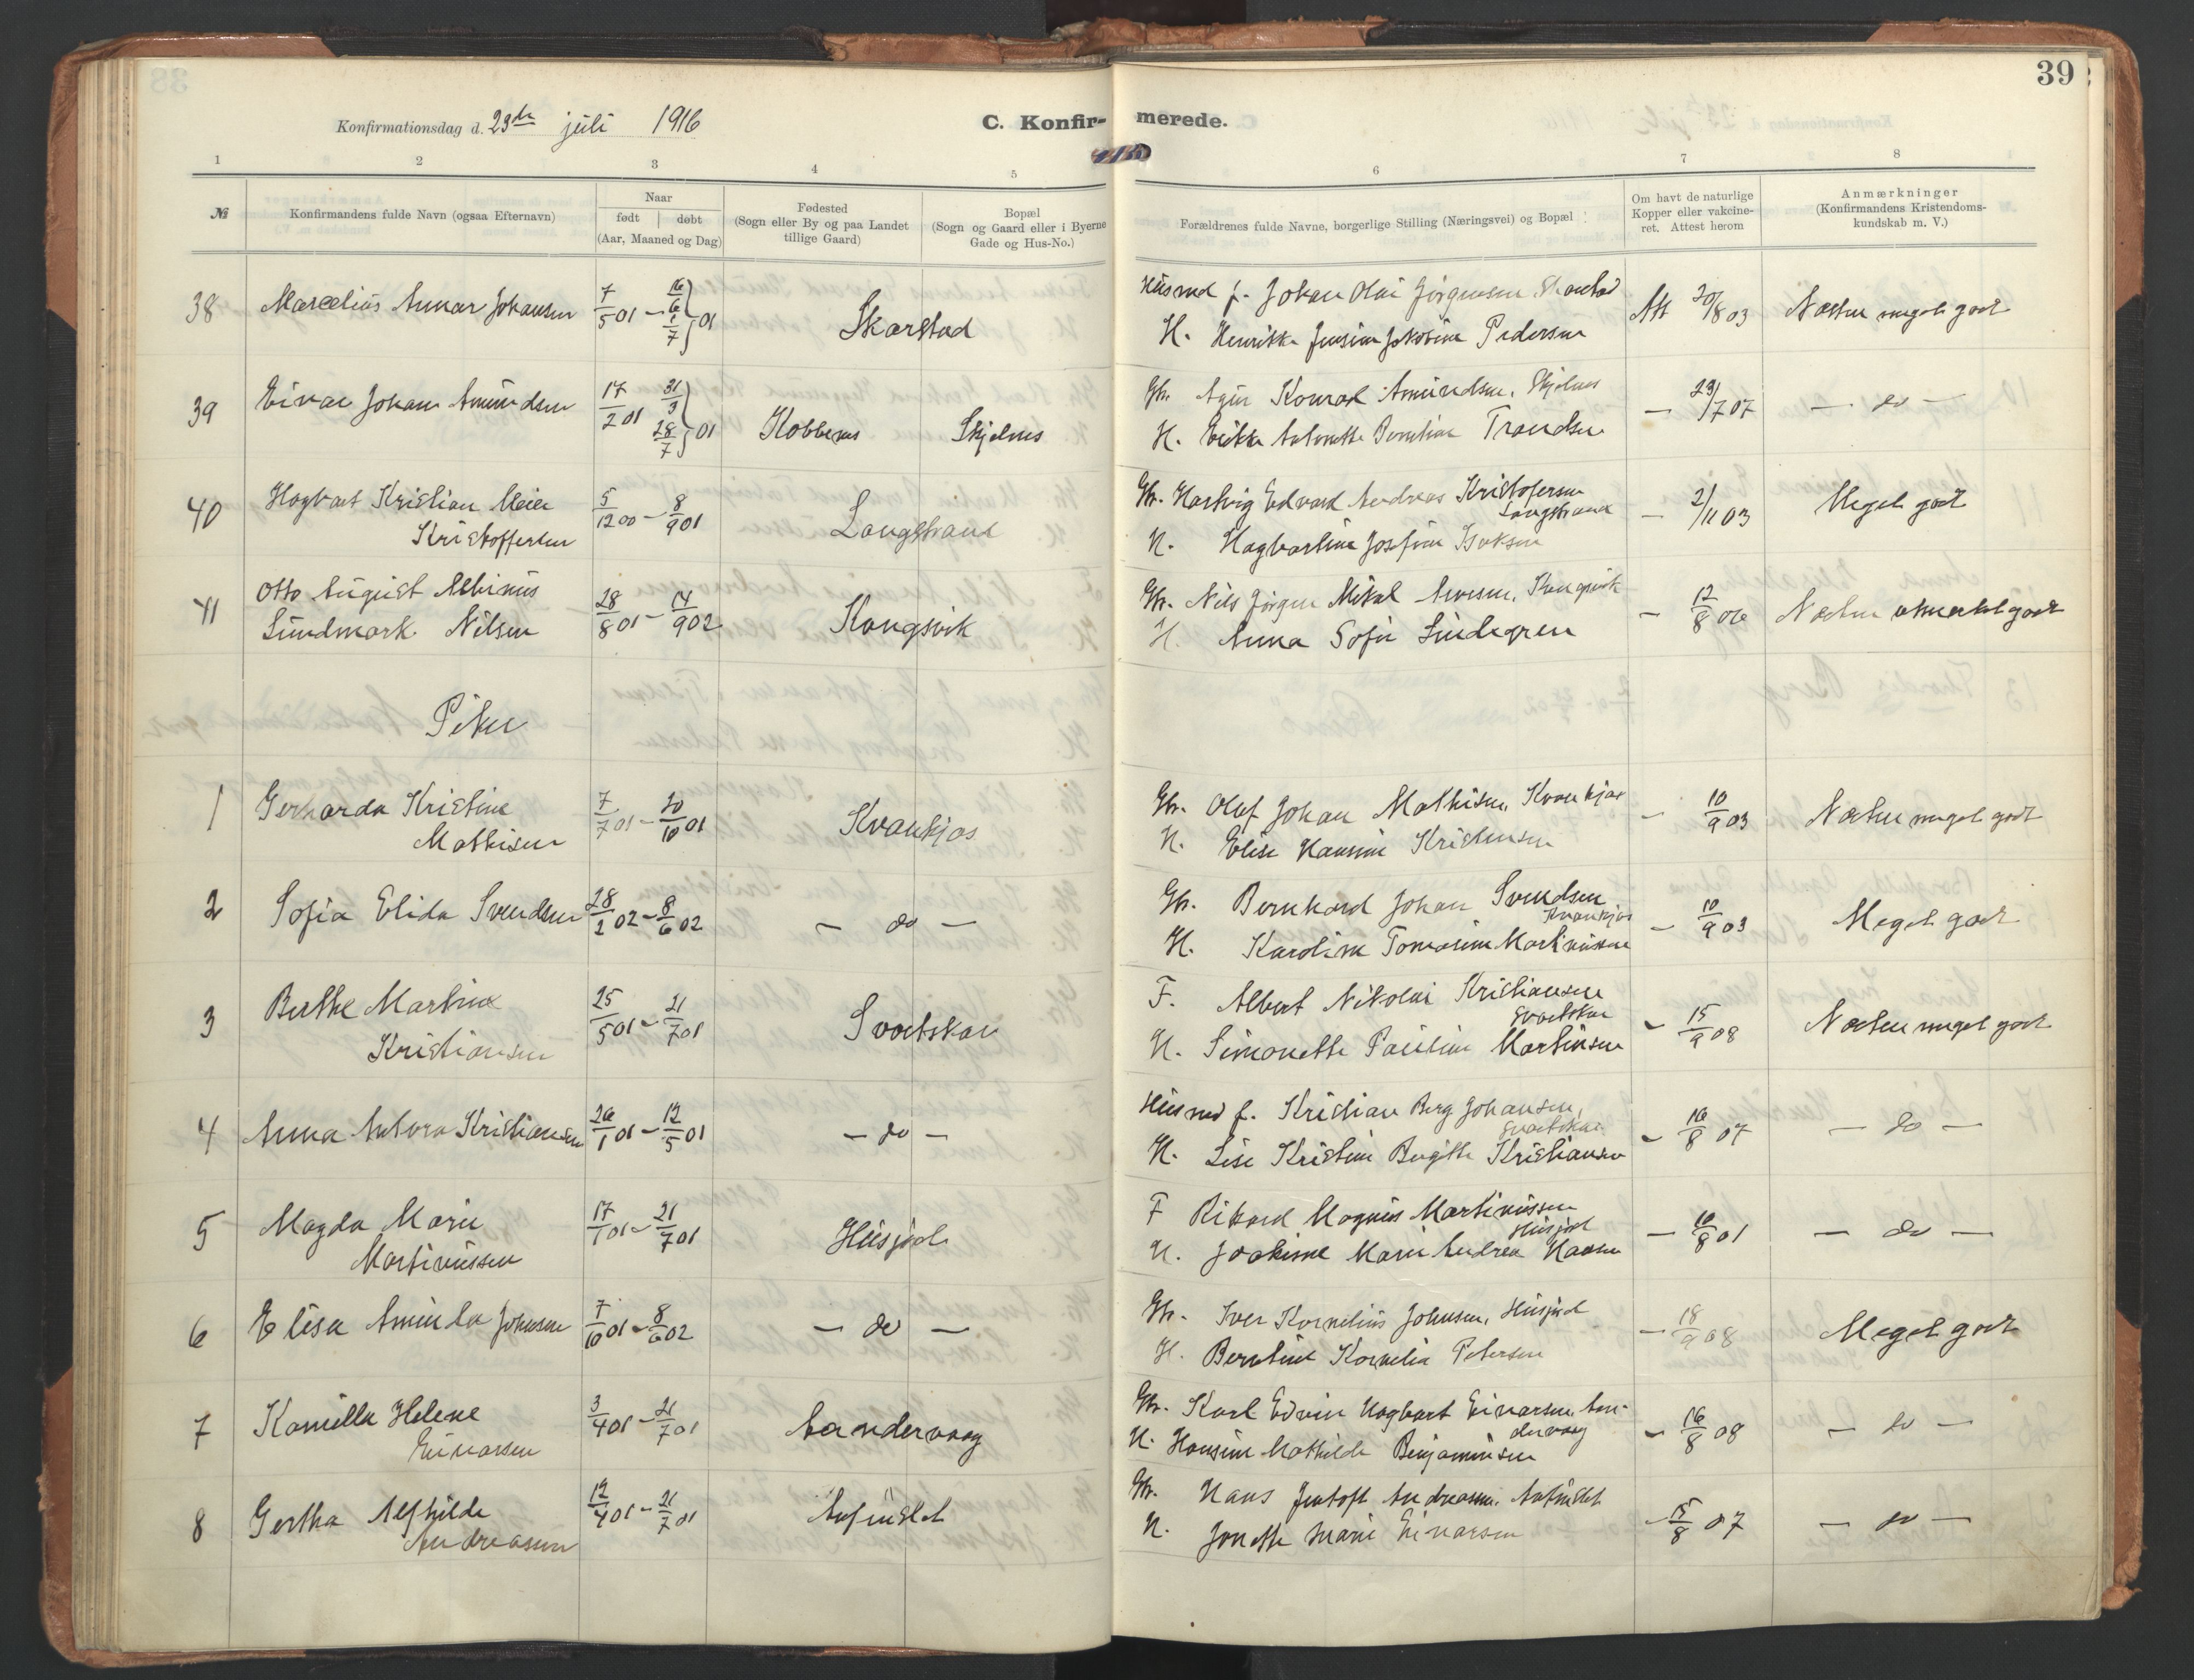 39
Konfirmationsdag d. 23de juli 1916
C. Konfir- merede.
1 2 3 4 5 6 7 8
№
Konfirmandens fulde Navn (ogsaa Efternavn)
Naar
født | døbt
(Aar, Maaned og Dag)
Fødested
(Sogn eller By og paa Landet
tillige Gaard)
Bopæl
(Sogn og Gaard eller i Byerne
Gade og Hus-No.)
Forældrenes fulde Navne, borgerlige Stilling (Næringsvei) og Bopæl
Om havt de naturlige
Kopper eller vakcine-
ret. Attest herom
Anmærkninger
(Konfirmandens Kristendoms-
kundskab m. V.)
38 Marcelius Annar Johansen 7/5 01 – 16/6 1/7 } 01 Skarstad Husmd f. Johan Olai Jørgensen, Skarstad Att 20/8 03 Næsten meget godt
H. Henrikke Jensine Jakobine Pedersen
39 Einar Johan Amundsen 17/2 01 31/3 28/7 } 01 Kobbenes Skjelnes Gbr. Konrad Amundsen, Skjelnes – 23/7 07 – do –
H. Trondsen
40 Hagbart Kristian Meier 5/12 00 – 8/9 01 Langstrand Gbr. Hartvig Edvard Andreas Kristofersen – 2/11 03 Meget godt
Kristoffersen Langstrand
H. Hagbartine Josefine Isaksen
41 Otto August Albinus 28/8 01 – 14/9 02 Kongsvik Gbr. Nils Jørgen Mikal Arnesen, Kongsvik – 12/8 06 Næsten utmerket godt
Lundmark Nilsen
H. Anna Sofie Lindegren
Piker
1 Gerharda Kristine 7/7 01 – 20/10 01 Kvankjos Gbr. Olaf Johan Mathisen, Kvankjos – 10/9 03 Næsten meget godt
Mathisen
H. Elise Hansine Kristensen
2 Sofia Elida Svendsen 28/2 02 – 8/6 02 – do – Gbr. Bernhard Johan Svendsen – 10/9 03 Meget godt
Kvankjos
H. Karoline Tomasine Martinussen
3 Berthe Martine 25/5 01 – 21/7 01 Svartskar F. Albert Nikolai Kristiansen – 15/9 08 Næsten meget godt
Kristiansen Svartskar
H. Simonette Pauline Martinsen
4 Anna Antora Kristiansen 26/1 01 – 12/5 01 – do – Husmd f. Kristian Berg Johansen, – 16/8 07 – do –
Svartskar
H. Lise Kristine Birgitte Kristiansen
5 Magda Marie 17/1 01 – 21/7 01 Husjord F Rikard Magnus Martinussen – 10/8 01 – do –
Martinussen Husjord
H. Joakime Marie Andrea Hansen
6 Elisa Aminda Johnsen 7/10 01 – 8/6 02 – do – Gbr. Iver Kornelius Johnsen, Husjord – 18/9 08 Meget godt
H. Berntine Kornelia Petersen
7 Kamilla Helene 3/4 01 – 21/7 01 Sandervaag Gbr. Karl Edvin Hagbart Einarsen, San- – 16/8 08 – do –
Einarsen dervaag
H. Hansine Mathilde Benjaminsen
8 Gertha Alfhilde 12/4 01 – 21/7 01 Gbr. Hans Jentoft Andreasen, – 15/8 07 – do –
Andreasen
H. Jonette Marie Einarsen